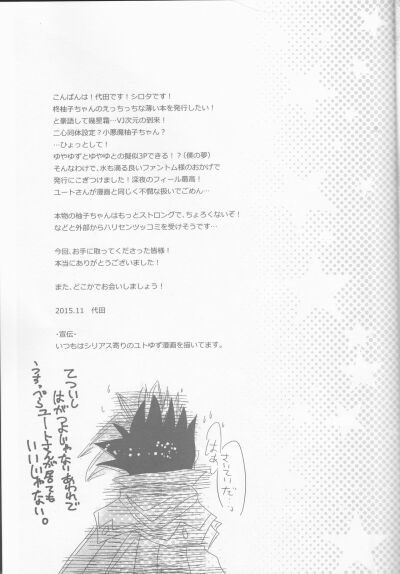 こんばんは！代田です！シロタです！
柊柚子ちゃんのえっちっちな薄い本を発行したい！
と豪語して幾星霜…VJ次元の到来！
二心同体設定？小悪魔柚子ちゃん？
…ひょっとして！
ゆやゆずとゆやゆとの擬似3Pできる！？(僕の夢)
そんなわけで、水も滴る良いファントム様のおかげで
発行にこぎつけました！深夜のフィール最高！
ユートさんが漫画と同じく不憫な扱いでごめん…
本物の柚子ちゃんはもっとストロングで、ちょろくないぞ！
などと外部からハリセンツッコミを受けそうです…
今回、お手に取ってくださった皆様！
本当にありがとうございました！
また、どこかでお会いしましょう！
2015.11　代田
-宣伝-
いつもはシリアス寄りのユトゆず漫画を描いてます。
てついし
はがつよじゃないあわれで
うすっぺらユートさんが居ても
いいじゃない。
さいていだ…っ
はぁ